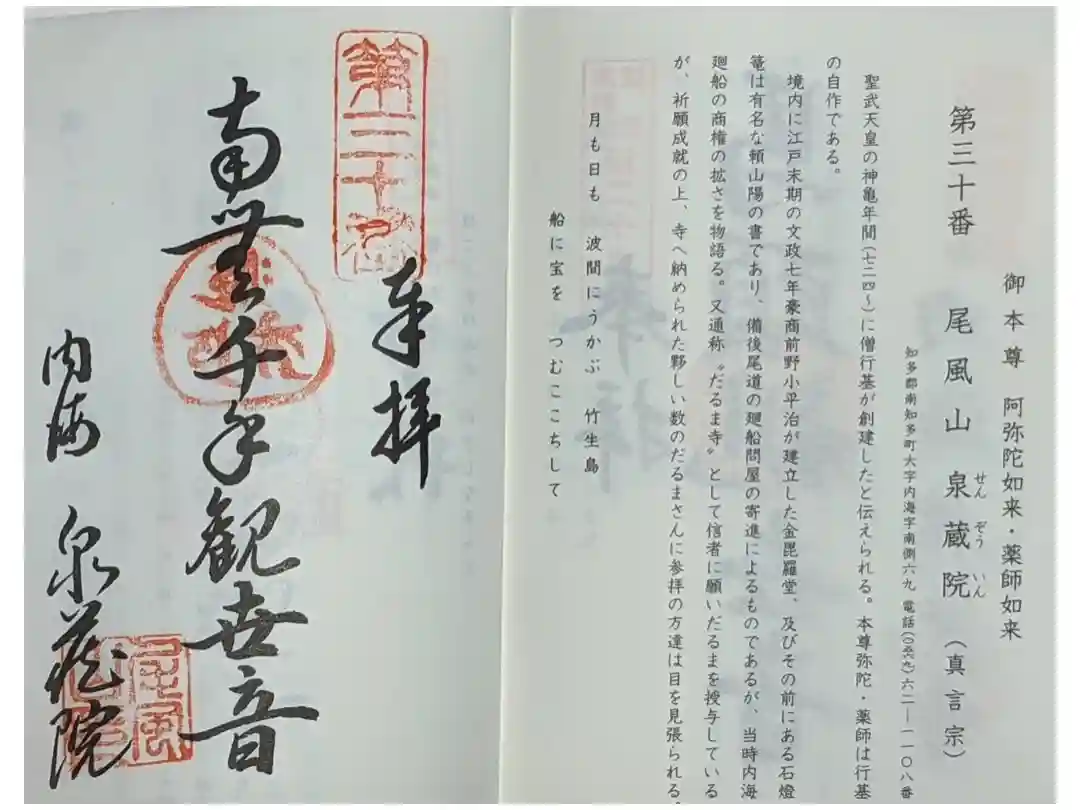 御本尊 阿弥陀如来・薬師如来
第三十番 尾風山 泉蔵院 (真言宗)
せん ぞう いん
知多郡南知多町大字内海字南側六九 電話(〇五六九)六二―一一〇八番
聖武天皇の神亀年間(七二四～)に僧行基が創建したと伝えられる。本尊弥陀・薬師は行基
の自作である。
境内に江戸末期の文政七年豪商前野小平治が建立した金毘羅堂、及びその前にある石燈
篭は有名な頼山陽の書であり、備後尾道の廻船問屋の寄進によるものであるが、当時内海
廻船の商権の拡さを物語る。又通称〝だるま寺〟として信者に願いだるまを授与している
が、祈願成就の上、寺へ納められた夥しい数のだるまさんに参拝の方達は目を見張られる。
月も日も 波間にうかぶ 竹生島
船に宝を つむここちして
第三十番
奉拝
南無千手観世音
内海 泉蔵院